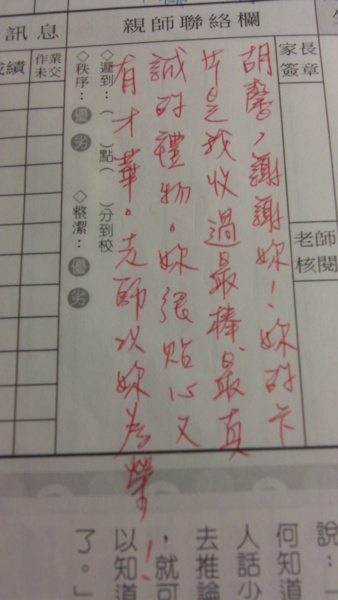 訊息
親師聯絡欄
家長
簽章
成績
作業
未交
胡馨，謝謝妳！妳的卡
片是我收過最棒、最真
誠的禮物。妳很貼心又
有才華。老師以妳為榮！
◇遲到：（ ）點（ ）分到校
◇秩序：優 劣
◇整潔：優 劣
老師
核閱
說：「
何知道
人話少
去推論
，就可
以知道
了。」